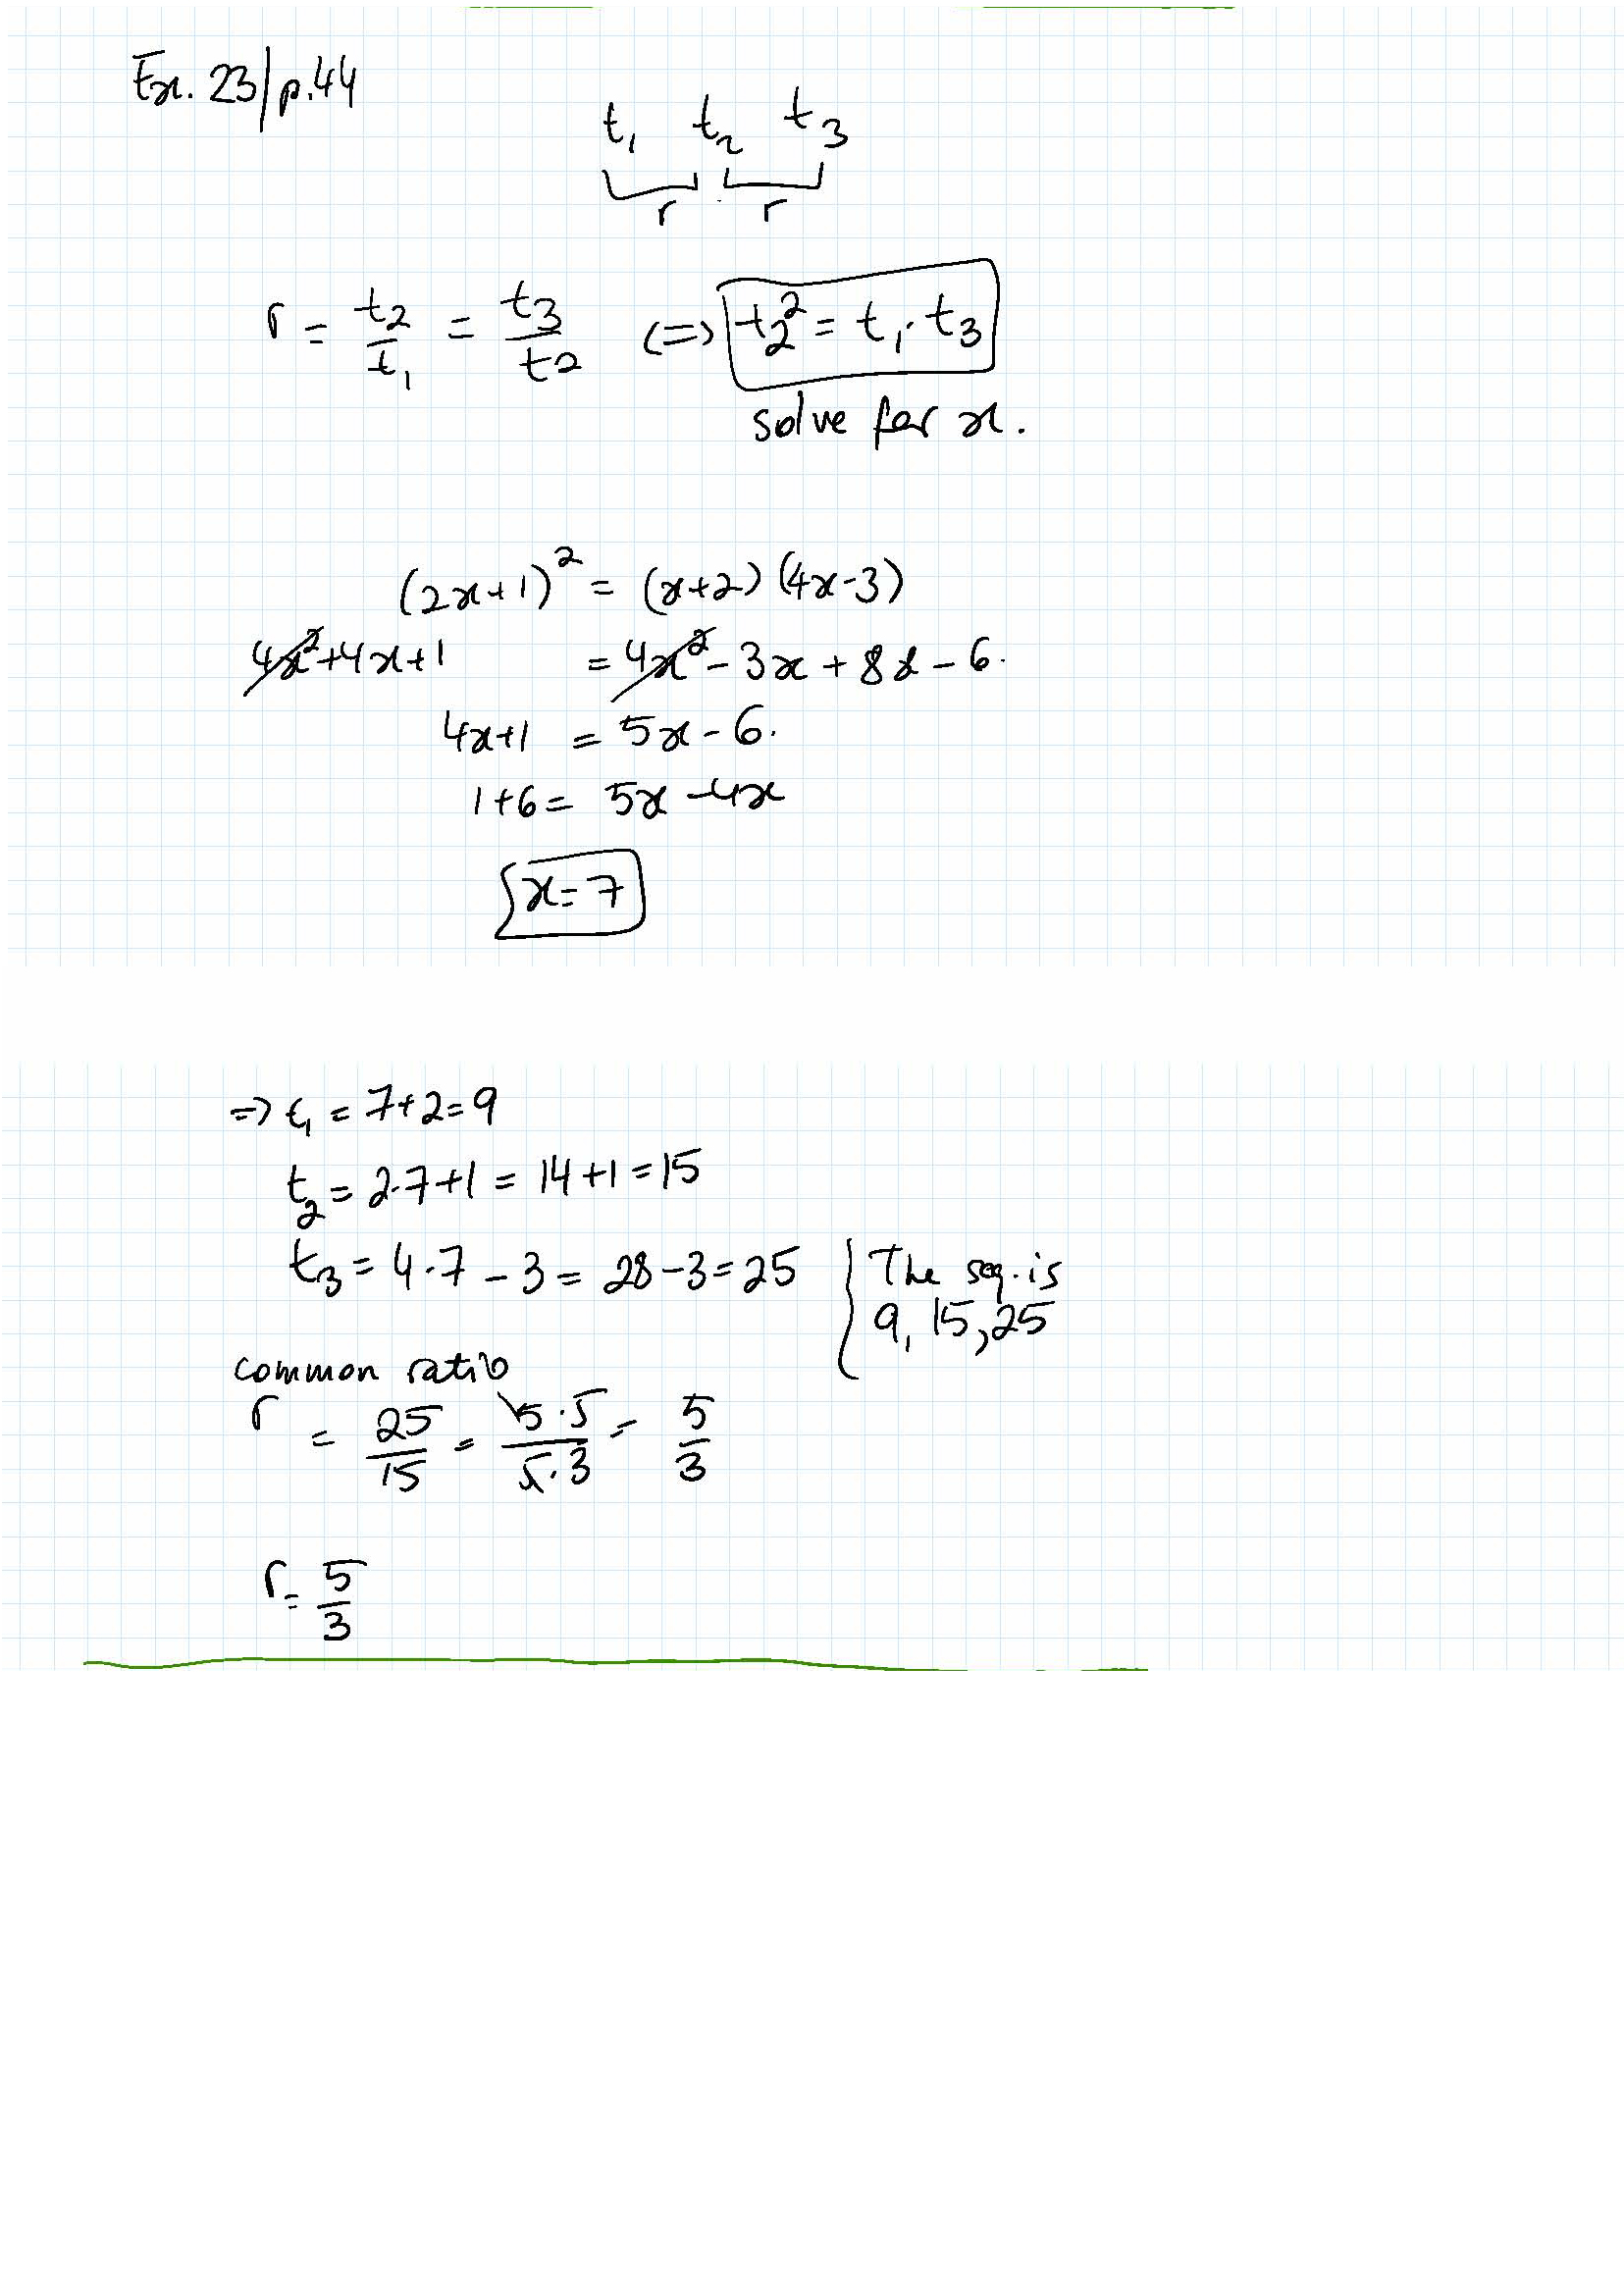 Ex. 23/p.44
t₁ t₂ t₃
r r
r = t₂/t₁ = t₃/t₂ (=) t₂² = t₁ · t₃
solve for x.
(2x+1)² = (x+2)(4x-3)
4x²+4x+1 = 4x²-3x+8x-6.
4x+1 = 5x-6.
1+6 = 5x-4x
x=7
=> t₁ = 7+2=9
t₂ = 2·7+1 = 14+1=15
t₃ = 4·7-3 = 28-3=25
The seq. is
9, 15, 25
common ratio
r = 25/15 = 5·5/5·3 = 5/3
r = 5/3